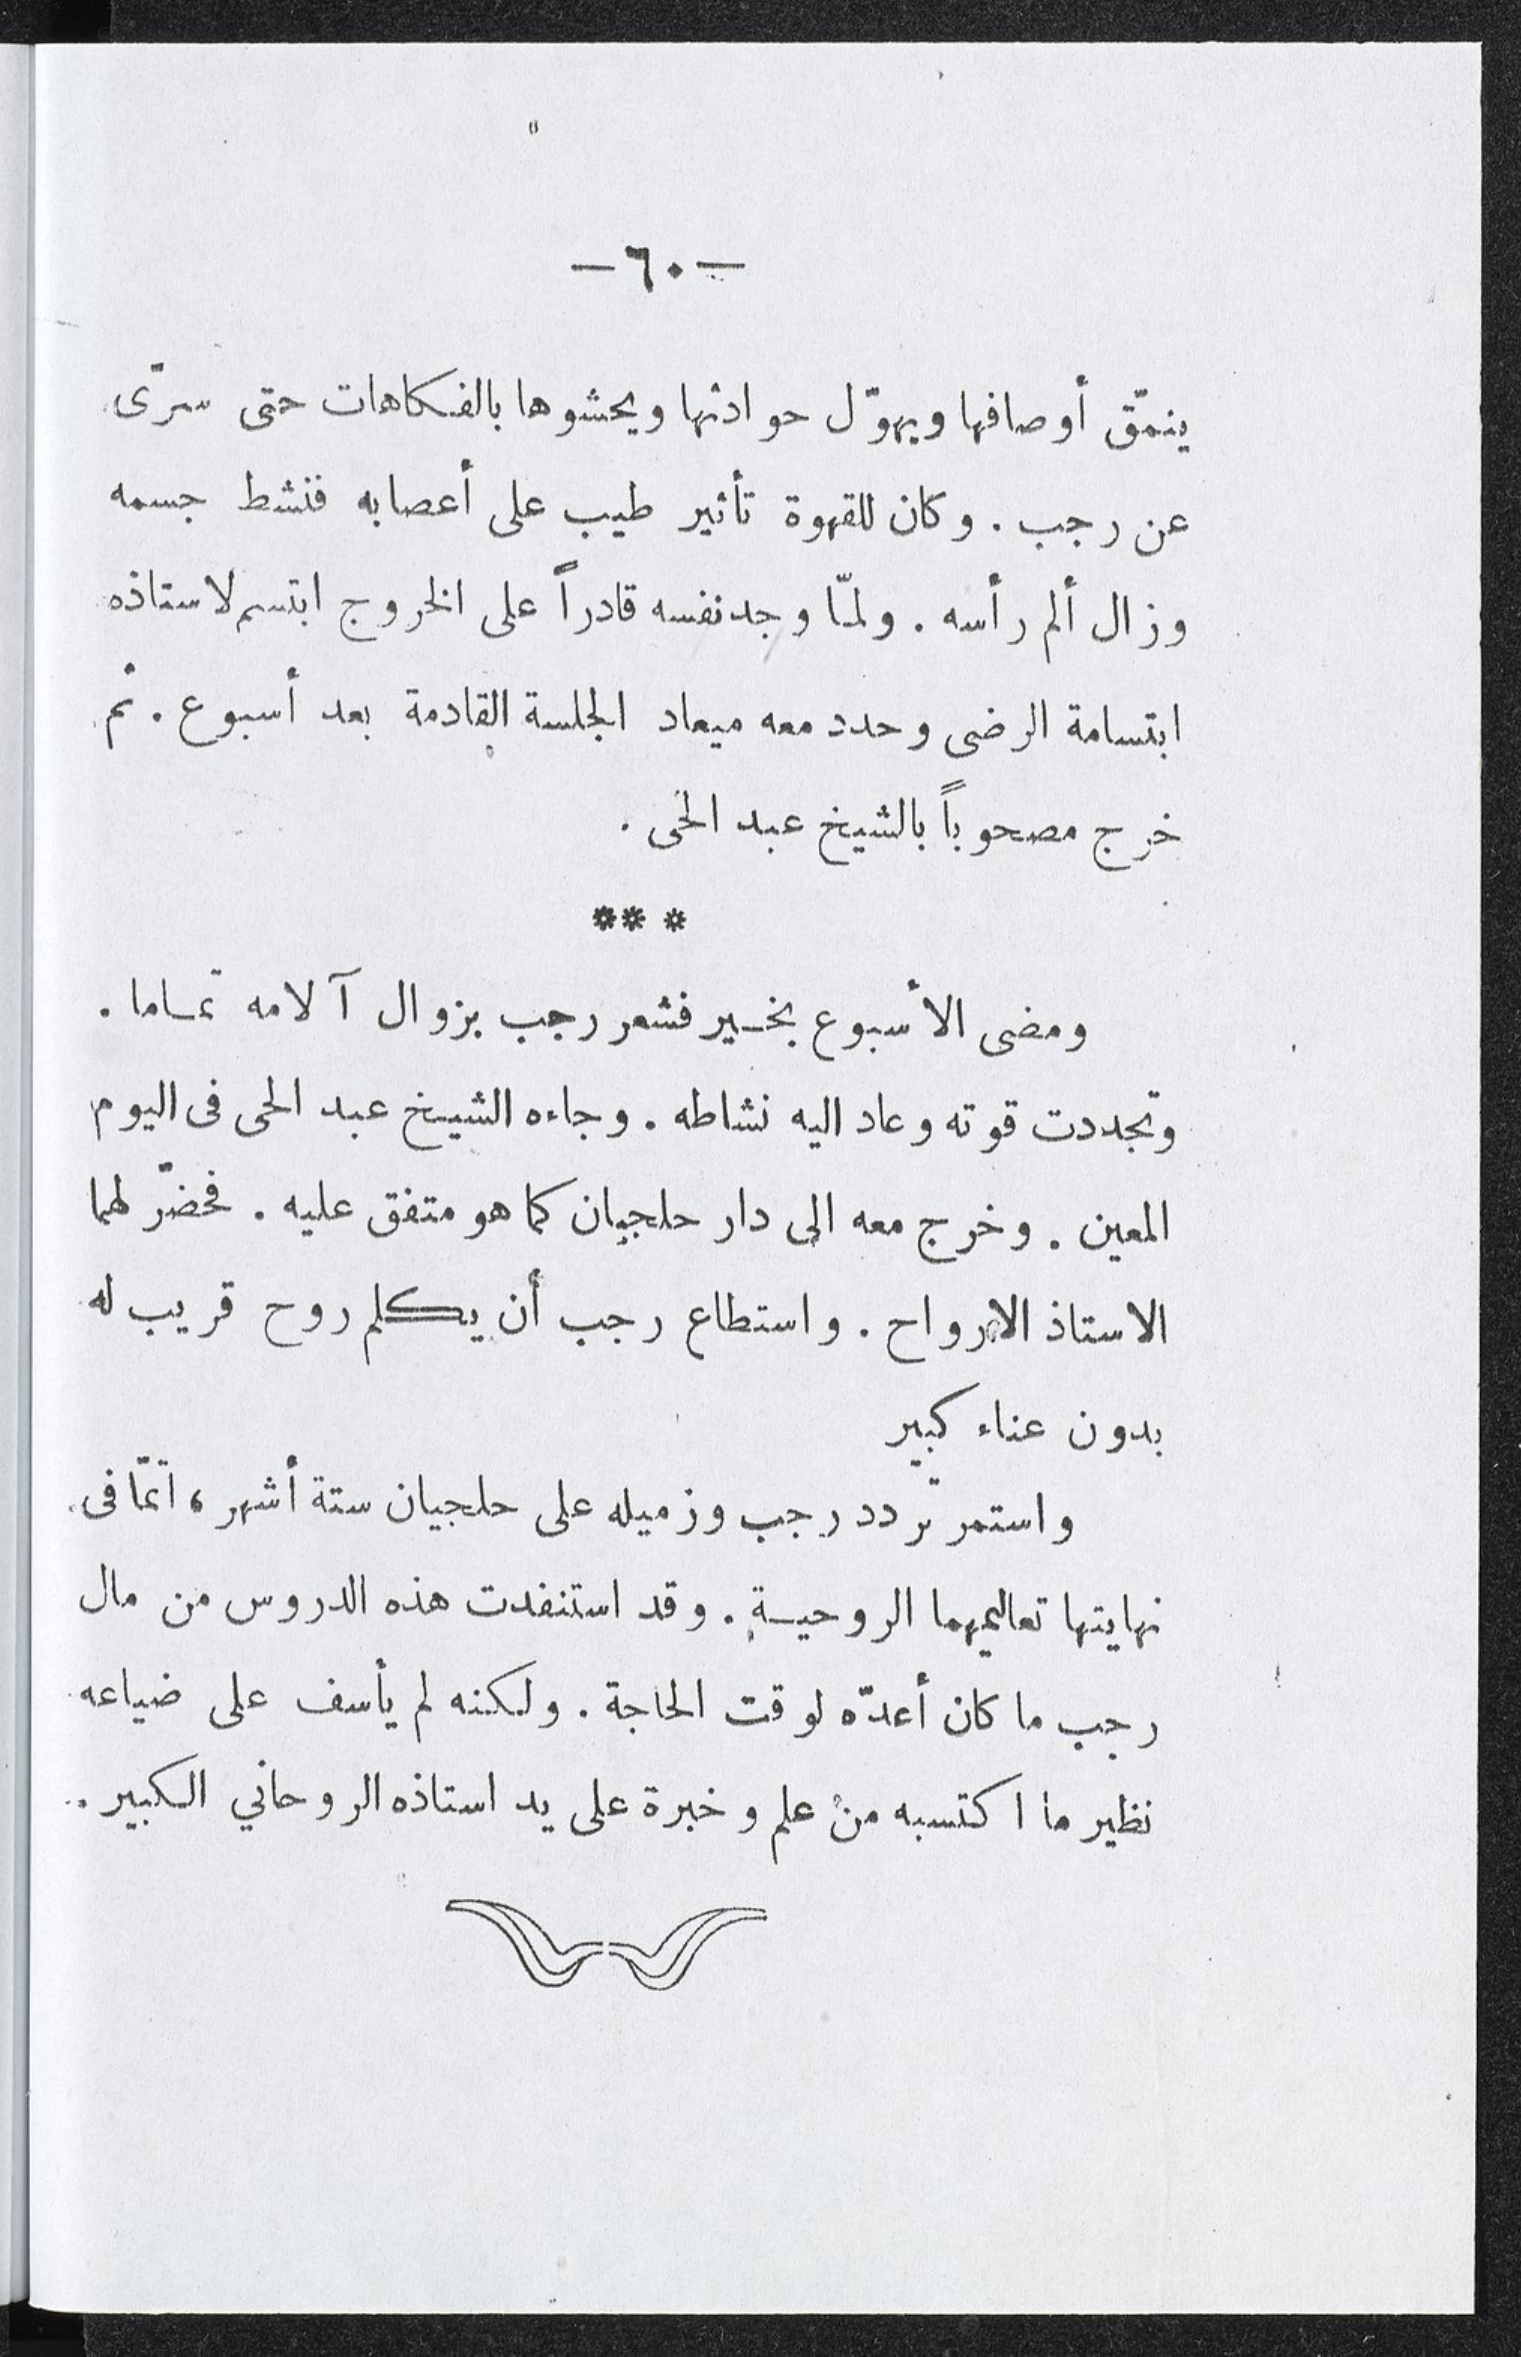 — ٦٠ —
ينمّق أوصافها ويهوّل حوادثها ويحشوها بالفكاهات حتى سرّى
عن رجب . وكان للقهوة تأثير طيب على أعصابه فنشط جسمه
وزال ألم رأسه . ولمّا وجد نفسه قادراً على الخروج ابتسم لاستاذه
ابتسامة الرضى وحدد معه ميعاد الجلسة القادمة بعد أسبوع . ثم
خرج مصحوباً بالشيخ عبد الحى .
* * *
ومضى الأسبوع بخير فشعر رجب بزوال آلامه تماما .
وتجددت قوته وعاد اليه نشاطه . وجاءه الشيخ عبد الحى فى اليوم
المعين . وخرج معه الى دار حلجيان كما هو متفق عليه . فحضّر لهما
الاستاذ الارواح . واستطاع رجب أن يكلم روح قريب له
بدون عناء كبير
واستمر تردد رجب وزميله على حلجيان ستة أشهر ، اتمّا فى
نهايتها تعاليمهما الروحية . وقد استنفدت هذه الدروس من مال
رجب ما كان أعدّه لوقت الحاجة . ولكنه لم يأسف على ضياعه
نظير ما اكتسبه من علم وخبرة على يد استاذه الروحاني الكبير .